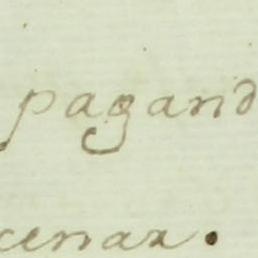 pagand
cenar.